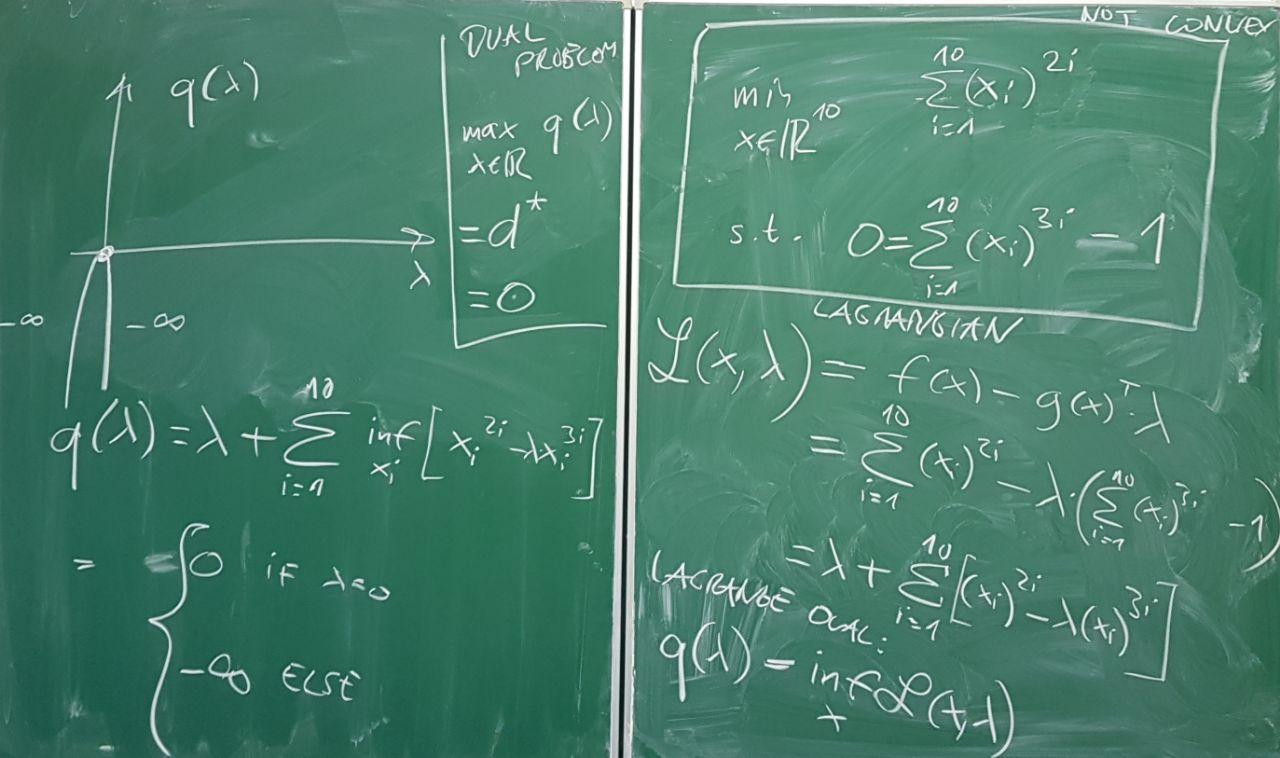 q(λ)
λ
-∞
-∞
DUAL
PROBLEM
max q(λ)
x∈ℝ
=d*
=0
q(λ) = λ + ∑_{i=1}^{10} inf_{x_i} [x_i^{2i} - λx_i^{3i}]
= { 0 if λ=0
-∞ ELSE
NOT CONVEX
min_{x∈ℝ^{10}} ∑_{i=1}^{10} (x_i)^{2i}
s.t. 0 = ∑_{i=1}^{10} (x_i)^{3i} - 1
LAGRANGIAN
ℒ(x, λ) = f(x) - g(x)^T·λ
= ∑_{i=1}^{10} (x_i)^{2i} - λ·(∑_{i=1}^{10} (x_i)^{3i} - 1)
= λ + ∑_{i=1}^{10} [(x_i)^{2i} - λ(x_i)^{3i}]
LAGRANGE DUAL:
q(λ) = inf_x ℒ(x,λ)